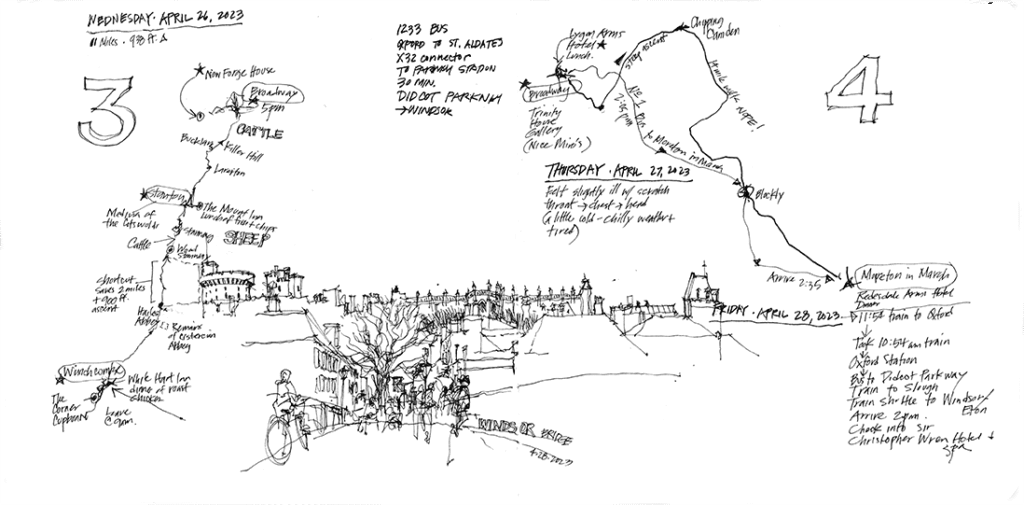 WEDNESDAY · APRIL 26, 2023
11 Miles · 938 ft.
3
Non Forge House
Broadway
5pm
CATTLE
Buckland
Killer Hill
Laverton
Stanton
The Mount Inn
Lunch of fish + chips
Medusa of
the Cotswolds
Stanway
SHEEP
Cattle
Wood
Stanway
Shortcut
Saves 2 miles
+ 900 ft.
ascent
Hailes
Abbey
Remains
of Cistercian
Abbey
Winchcombe
White Hart Inn
dinner of roast
chicken
The
Corner
Cupboard
Leave
@ 9am.
1233 BUS
OXFORD TO ST. ALDATES
X32 connector
TO PARKWAY STATION
30 MIN.
DIDCOT PARKWAY
→ WINDSOR
Lygon Arms
Hotel
Lunch.
Steep ascent
Chipping
Camden
4
Broadway
Trinity
House
Gallery
(Nice Mini's)
No. 1 Bus
2:05 pm
to Moreton in Marsh
4 mile walk NOPE!
THURSDAY · APRIL 27, 2023
Felt slightly ill w/ scratch
throat → chest → head
(a little cold - chilly weather +
tired)
Blockly
Arrive 2:35
Moreton in Marsh
Redesdale Arms Hotel
Dinner
FRIDAY · APRIL 28, 2023
11:54 train to Oxford
Took 10:54 am train
Oxford Station
Bus to Didcot Parkway
Train to Slough
Train shuttle to Windsor/
Eton
Arrive 2pm.
Check into Sir
Christopher Wren Hotel +
Spa
WINDSOR BRIDGE
4·28·2023